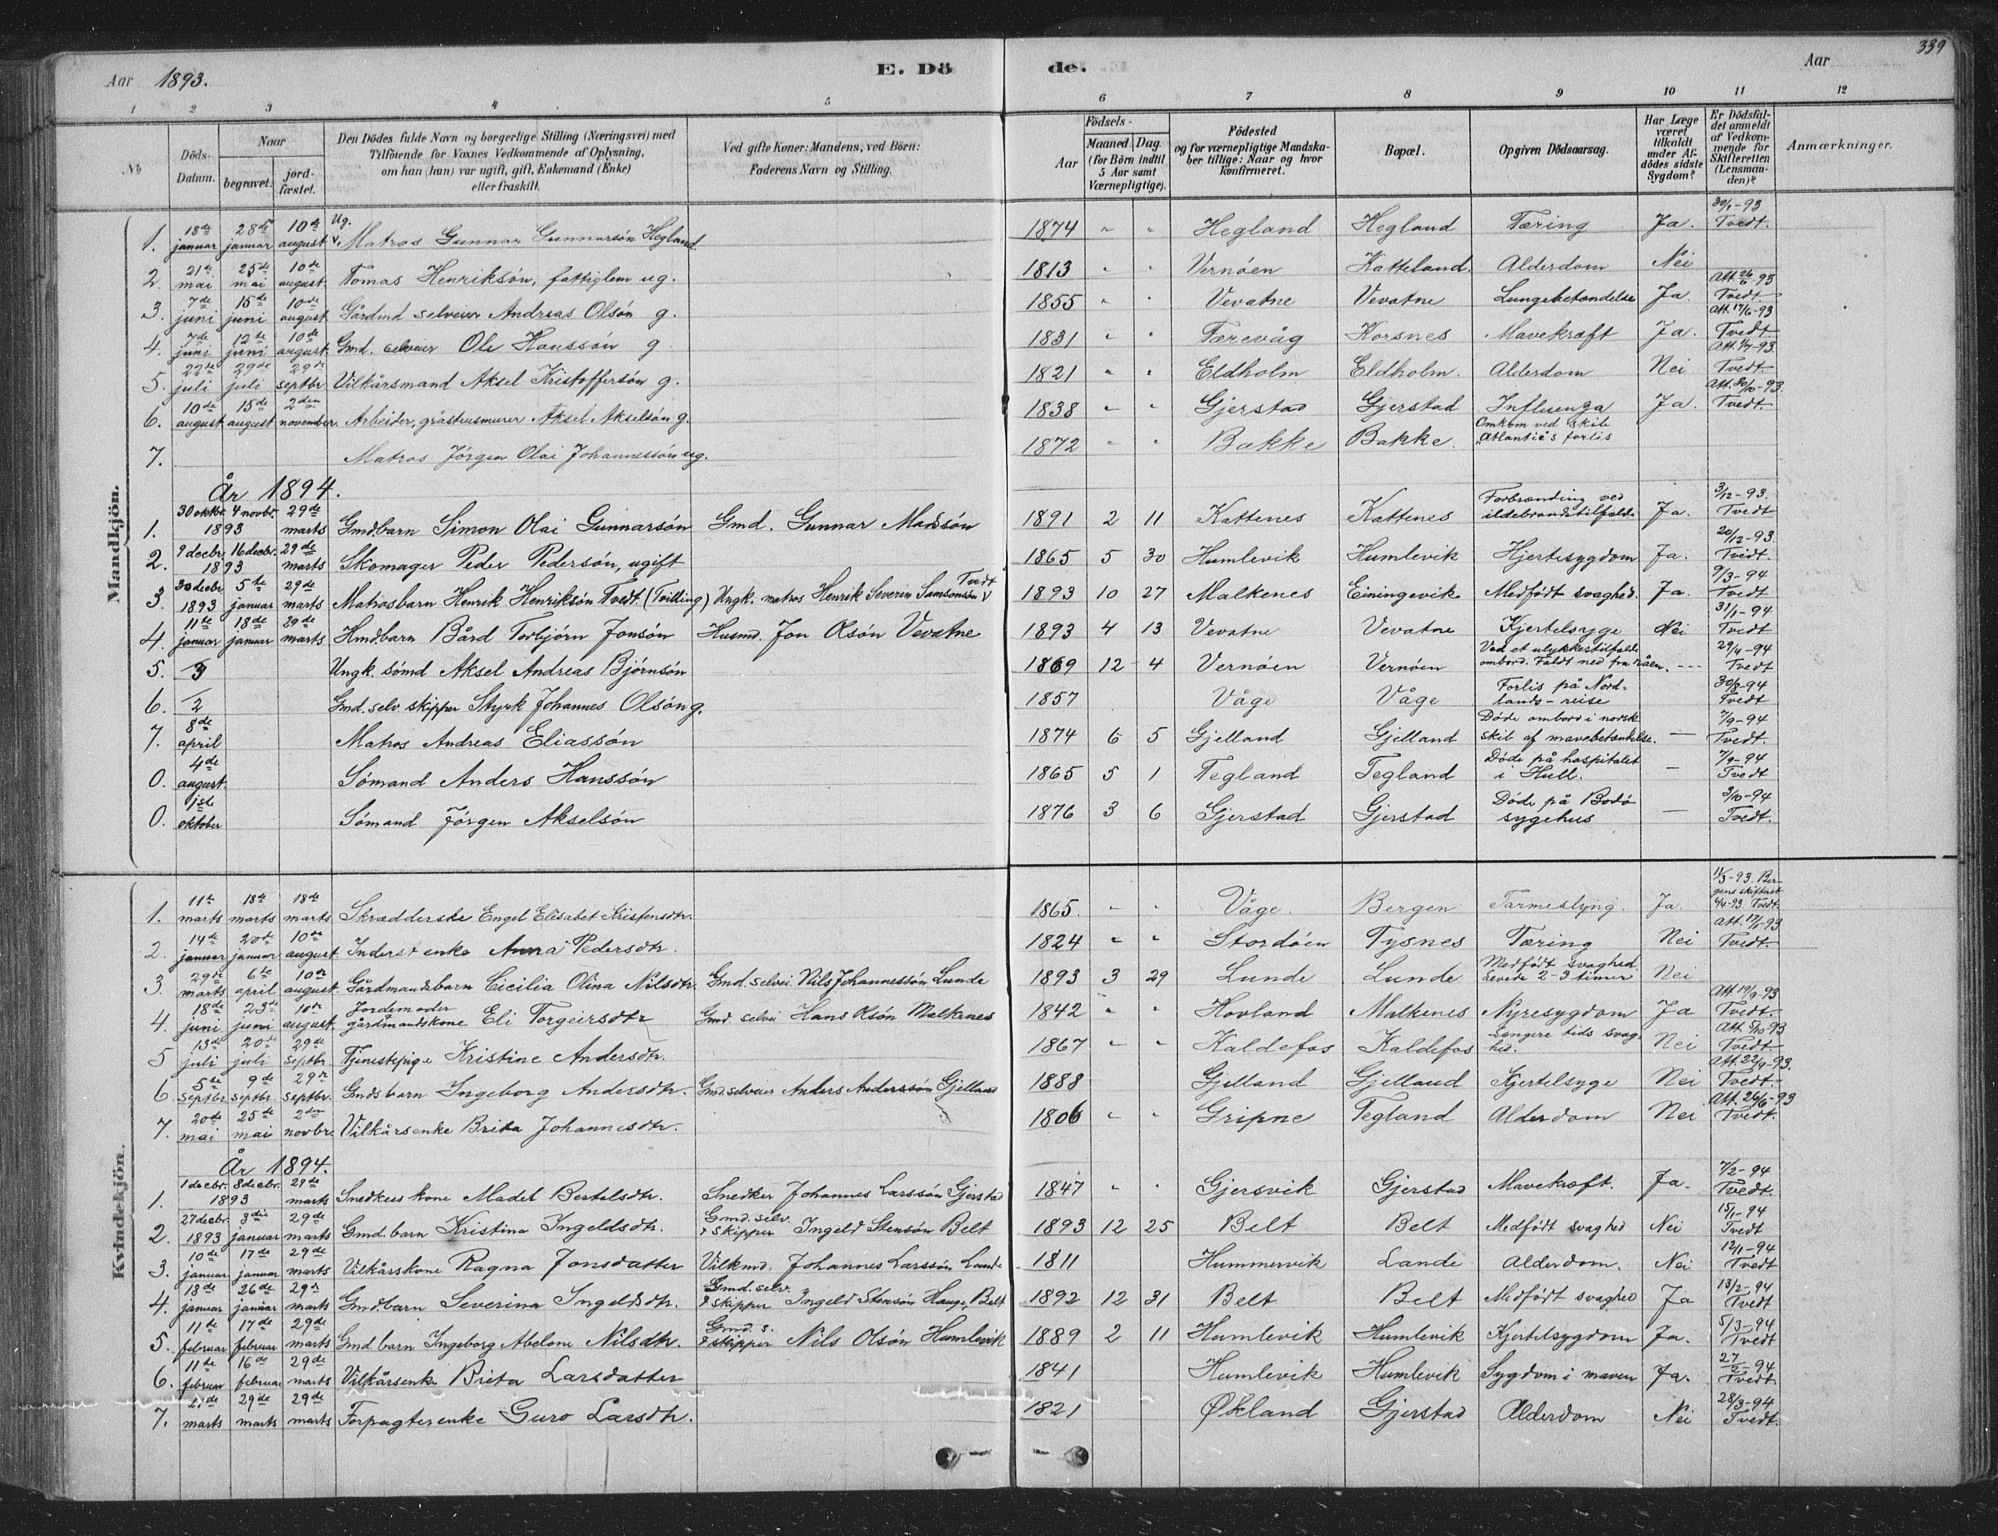 Aar 1893. E. Dö de. Aar 339
1 2 3 4 5 6 7 8 9 10 11 12
No. Döds-Datum. Naar begravet. jordfæstet. Den Dödes fulde Navn og borgerlige Stilling (Næringsvei) med Tilföiende for Voxnes Vedkommende af Oplysning, om han (hun) var ugift, gift, Enkemand (Enke) eller fraskilt. Ved gifte Koner: Mandens, ved Börn: Faderens Navn og Stilling. Födsels- Aar Maaned. Dag. (for Börn indtil 5 Aar samt Værnepligtige). Födested og for værnepligtige Mandskaber tillige: Naar og hvor konfirmeret. Bopæl. Opgiven Dödsaarsag. Har Læge været tilkaldt under Afdödes sidste Sygdom? Er Dödsfaldet anmeldt af Vedkommende for Skifteretten (Lensmanden)? Anmærkninger.
Mandkjön.
1. 18de januar 28de januar 10de august Ug. Matros Gunnar Gunnarsön Hegland 1874 " " Hegland Hegland Tæring Ja. 30/1-93 Tvedt.
2. 21de mai 25de mai 10de august Tomas Henriksön, fattiglem ug. 1813 " " Vernöen Katteland. Alderdom Nei
3. 7de juni 15de juni 10de august Gårdmd selveier Andreas Olsön g. 1855 " " Vevatne Vevatne Lungebetendelse Ja. Att. 26/6-93 Tvedt
4. 7de juni 12de juni 10de august Gmd. selveier Ole Hanssön g 1831 " " Færevåg Korsnes Mavekræft Ja. Att. 17/6-93 Tvedt
5. 22de juli 29de juli 29de septbr Vilkårsmand Aksel Kristoffersön g. 1821 " " Eldholm Eldholm. Alderdom Nei Att. 1/7-93. Tvedt
6. 10de august 15de august 2den november. Arbeider, gråstensmurer Aksel Akselsön g. 1838 " " Gjerstad Gjerstad Influenza Ja. Att. 30/10-93. Tvedt
7. Matros Jörgen Olai Johannessön ug. 1872 " " Bakke Bakke. Omkom ved skib "Atlantic's forlis
År 1894.
1. 30 oktbr. 1893 4 novbr. 29de marts Gmdbarn Simon Olai Gunnarsön Gmd. Gunnar Madssön 1891 2 11 Kattenes Kattenes Forbrænding ved ildebrandstilfælde Ja. 3/12-93. Tvedt
2. 9 decbr 1893 16 decbr. 29de marts Skomager Peder Pedersön, ugift 1865 5 30 Humlevik Humlevik Hjertesygdom Ja. 20/12-93 Tvedt.
3. 30 decbr 1893 5te januar 29de marts Matrosbarn Henrik Henriksön Tvedt (Tvilling) Ungk. matros Henrik Severin Samsonsön Tvedt 1893 10 27 Malkenes Einingevik Medfödt svaghed. Ja. 9/3-94 Tvedt
4. 11te januar 18de januar 29de marts Hmdbarn Bård Torbjörn Jonsön Husmd. Jon Olsön Vevatne 1893 4 13 Vevatne Vevatne Kjertelsyge Nei 31/1-94 Tvedt
5. 3 Ungk. sömd Aksel Andreas Björnsön 1869 12 4 Vernöen Vernöen Ved et ulykkestilfælde ombord. Faldt ned fra råen. --- 29/4-94 Tvedt
6. 2 Gmd. selv. skipper Styrk Johannes Olsön g. 1857 Våge Våge Forlis på Nordlands-reise 30/8-94 Tvedt
7. 8de april Matros Andreas Eliassön 1874 6 5 Gjelland Gjelland Döde ombord i norsk skib af mavebetændelse. — 7/9-94 Tvedt.
0. 4de august. Sömand Anders Hanssön 1865 5 1 Tegland Tegland Döde på hospitalet i Hull. — 7/9-94 Tvedt
0. 1ste oktober Sömand Jörgen Akselsön 1876 3 6 Gjerstad Gjerstad Döde på Bodö sygehus — 3/10-94 Tvedt.
Kvindekjön.
1. 11te marts 18de marts 18de marts Skrædderske Engel Elisabet Kristensdtr. 1865. " " Våge. Bergen Tarmeslyng. Ja 11/3-93. Bergens skifteret Tvedt.
2. 14de januar 20de januar 10de august Inderst enke Anna Pedersdtr. 1824 " " Stordöen Tysnes Tæring Nei Att. 17/1-93 Tvedt
3. 29de marts 6te april 10de august Gårdmandsbarn Cicilia Olina Nilsdtr. Gmd. selvei Nils Johannessön Lunde 1893 3 29 Lunde Lunde Medfödt svaghed. Levede 2-3 timer Nei
4. 18de juni 23de juni 10de august Jordemoder gårdmandskone Eli Torgeirsdtr Gmd. selvei Hans Olsön Malkenes 1842 " " Hovland Malkenes Nyresygdom Ja Att. 19/9-93 Tvedt.
5. 13de juli 20de juli 29de septbr. Tjenestepige Kristine Andersdtr. 1867 " " Kaldefos Kaldefos Længere tids svaghed. Nei Att. 5/10-93 Tvedt
6. 5te septbr 9de septbr. 29de septbr. Gmdsbarn Ingeborg Andersdtr. Gmd selveier Anders Anderssön Gjelland 1888 Gjelland Gjelland Kjertelsyge Nei Att. 22/9-93. Tvedt
7. 20de mai 25de mai 2den novbr. Vilkårsenke Brita Johannesdtr. 1806 " " Gripne Tegland Alderdom Nei Att. 26/6-93 Tvedt
År 1894.
1. 1 decbr. 1893 8 decbr. 29de marts Snedkers kone Madel Bertelsdtr. Snedker Johannes Larssön Gjerstad 1847 " " Gjersvik Gjerstad Mavekræft. Ja. 7/2-94 Tvedt.
2. 27 decbr. 1893 3die januar 29de marts Gmd. barn Kristina Ingeldsdtr. Gmd. selv. & skipper Ingeld Stensön Belt 1893 12 25 Belt Belt Medfödt svaghed Nei 15/1-94 Tvedt
3. 10de januar 17de januar 29de marts Vilkårskone Ragna Jonsdatter Vilkmd. Johannes Larssön Lande 1811 Hummervik Lande Alderdom. Nei 12/1-94 Tvedt
4. 18de januar 26de januar 29de marts Gmdbarn Severina Ingeldsdtr. Gmd. selv. & skipper Ingeld Stensön Hauge, Belt 1892 12 31 Belt Belt Medfödt svaghed Ja 13/2-94 Tvedt
5. 11te februar 17de februar 29de marts Gmd barn Ingeborg Abelone Nilsdtr. Gmd. s. & skipper Nils Olsön Humlevik 1889 2 11 Humlevik Humlevik Kjertelsygdom Ja. 5/3-94 Tvedt
6. 11te februar 16de februar 29de marts Vilkårsenke Brita Larsdatter 1841 Humlevik Humlevik Sygdom i maven Ja. 27/2-94 Tvedt.
7. marts 29de marts 29de marts Forpagterenke Guro Larsdtr. 1821 Økland Gjerstad Alderdom Nei 28/3-94 Tvedt.